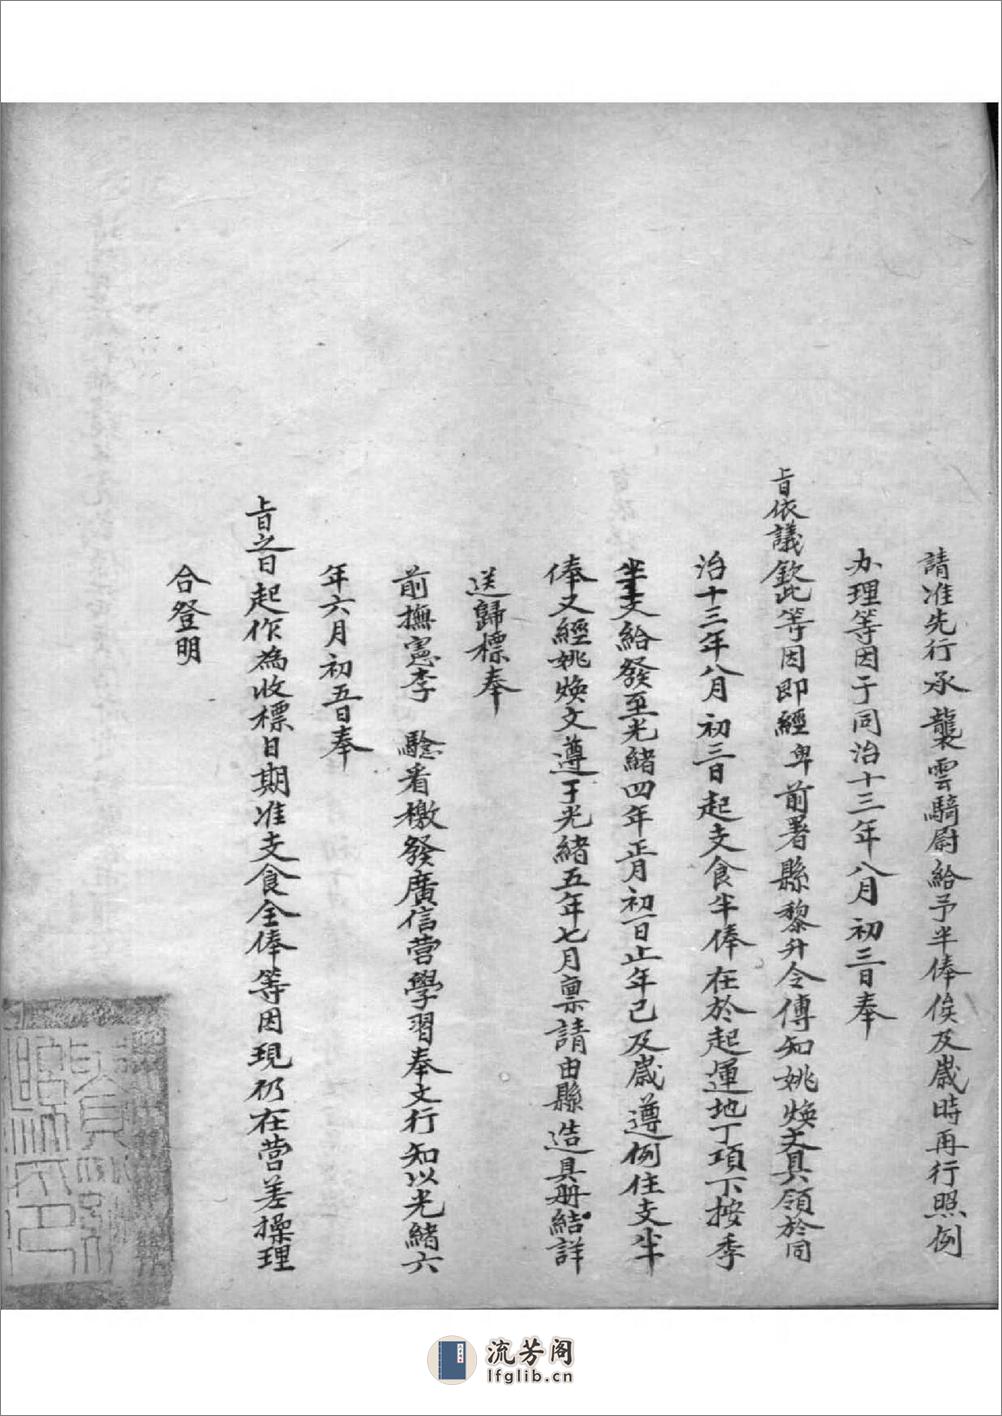 請准先行承襲雲騎尉給予半俸俟及歲時再行照例
办理等因于同治十三年八月初三日奉
旨依議欽此等因即經卑前署縣黎升令傳知姚煥文具領於同
治十三年八月初三日起支食半俸在於起運地丁項下按季
坐支給發至光緒四年正月初一日止年已及歲遵例住支半
俸又經姚煥文遵于光緒五年七月稟請由縣造具册結詳
送歸標奉
前撫憲李 驗看檄發廣信營學習奉文行知以光緒六
年六月初五日奉
旨之日起作為收標日期准支食全俸等因現仍在營差操理
合登明
流芳阁
lfglib.cn